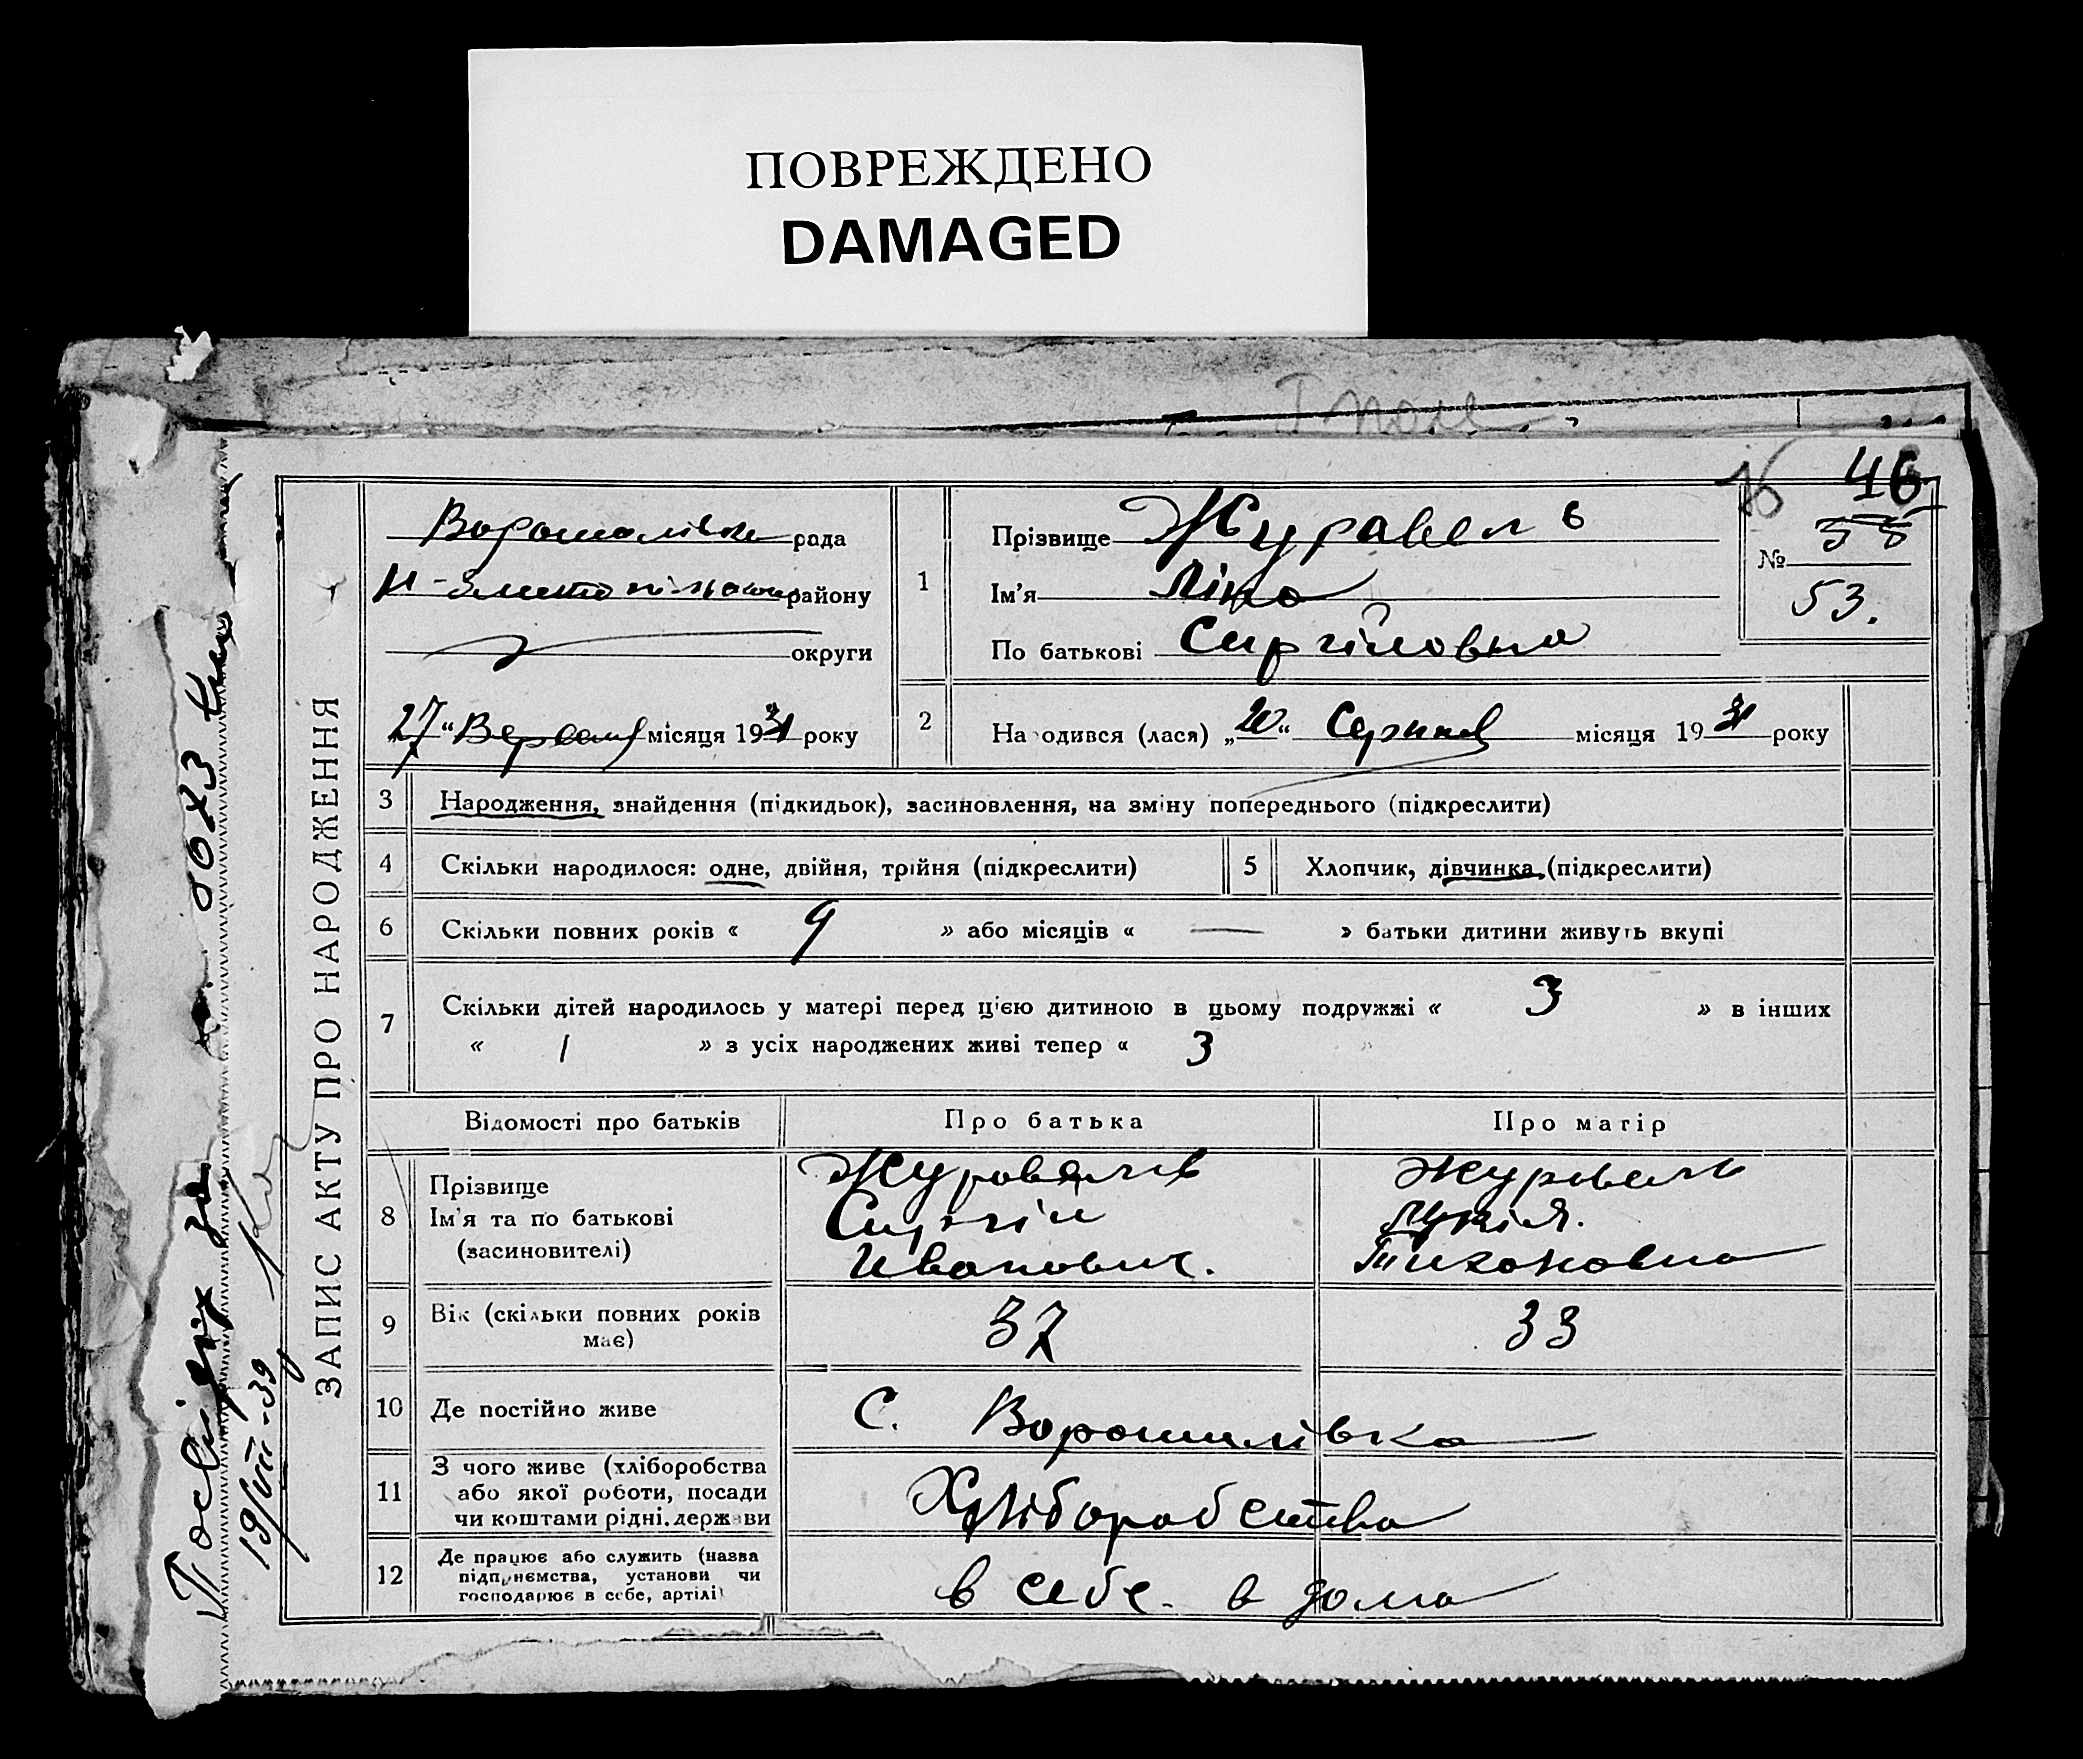 ПОВРЕЖДЕНО
DAMAGED
ЗАПИС АКТУ ПРО НАРОДЖЕННЯ
рада
району
округи
27 " місяця 1931 року
46
№ 38
53.
1
Прізвище Журавель
Ім'я Ліна
По батькові
2
На одився (лася) „20" Серпня місяця 1931 року
3 Народження, знайдення (підкидьок), засиновлення, на зміну попереднього (підкреслити)
4 Скільки народилося: одне, двійня, трійня (підкреслити)
5 Хлопчик, дівчинка (підкреслити)
6 Скільки повних років « 9 » або місяців « — » батьки дитини живуть вкупі
7 Скільки дітей народилось у матері перед цією дитиною в цьому подружжі « 3 » в інших
« 1 » з усіх народжених живі тепер « 3 »
Відомості про батьків Про батька Про матір
8 Прізвище
Ім'я та по батькові
(засиновителі)
Сиргій
Иванович.
Журавель
Тихоновна
9 Вік (скільки повних років має) 37 33
10 Де постійно живе С. Ворошилівка
11 З чого живе (хліборобства
або якої роботи, посади
чи коштами рідні. держави
Хліборобства
12 Де працює або служить (назва
підприємства, установи чи
господарює в себе, артілі)
в себе. в дома
19/VIII-39